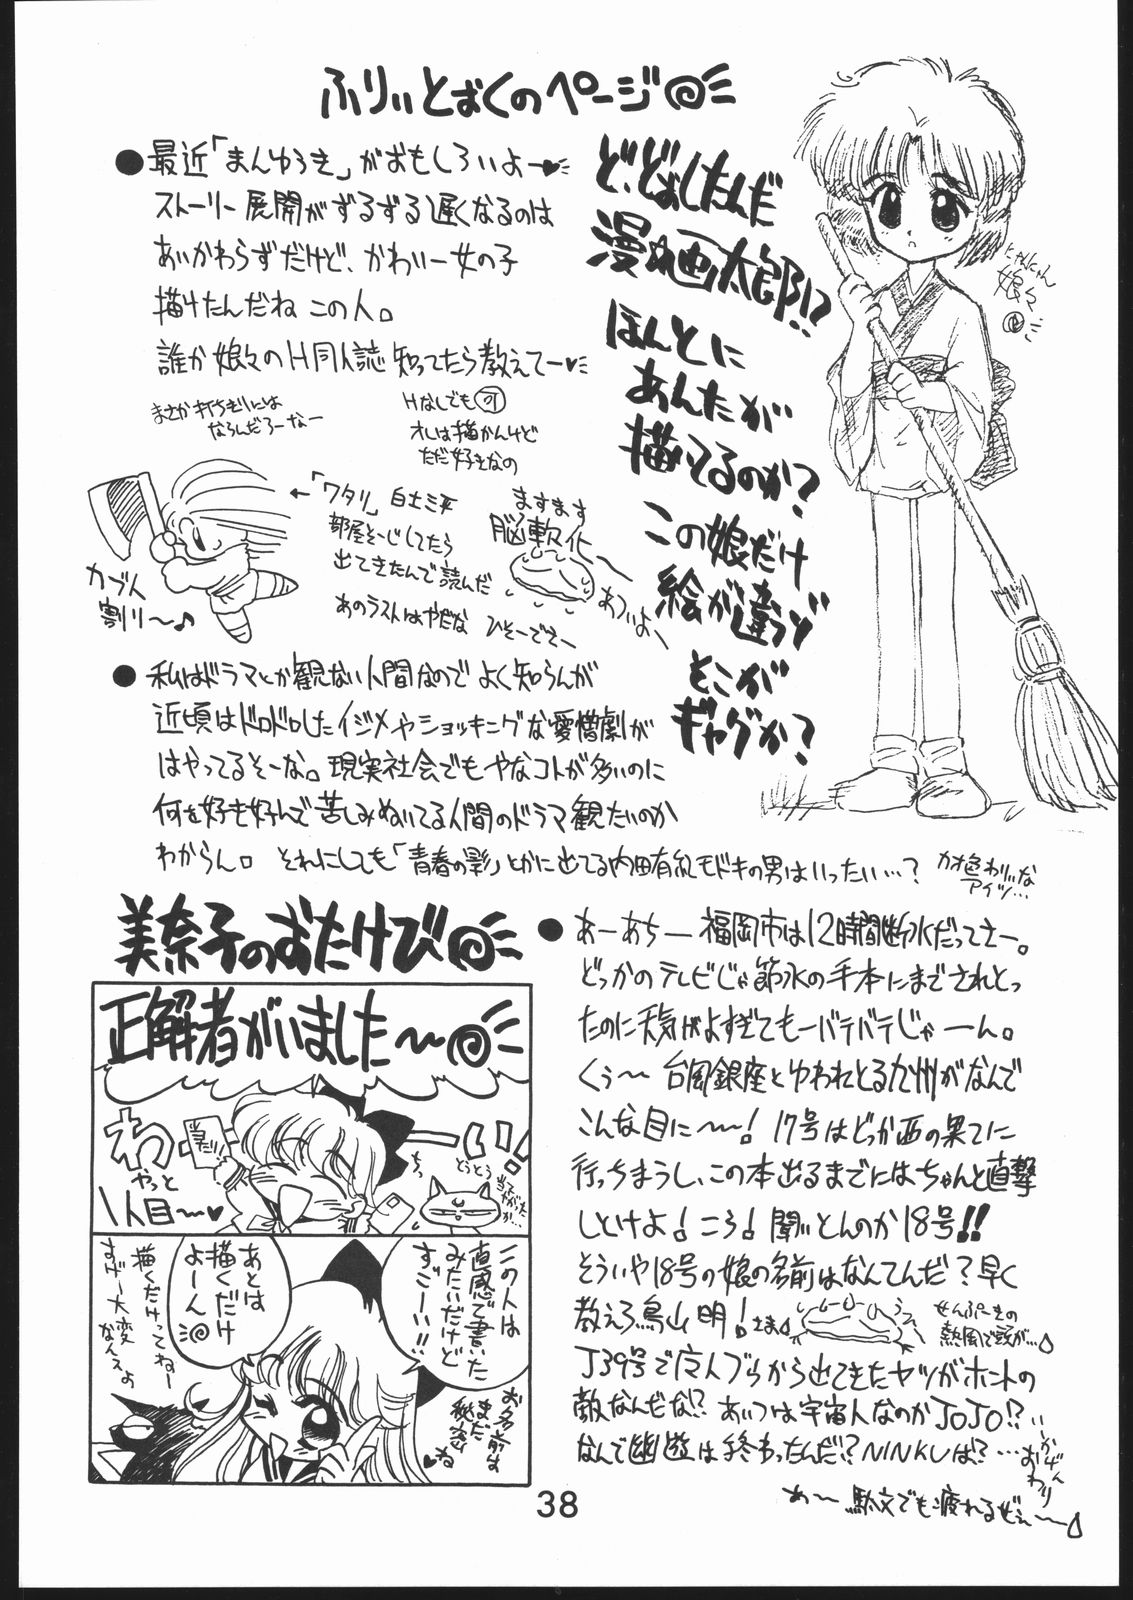 ふりぃとばくのページ
●最近「まんゆうき」がおもしろいよー♥
ストーリー展開がずるずる遅くなるのは
あいかわらずだけど、かわいー女の子
描けたんだね この人。
誰か娘々のH同人誌知ってたら教えてー♥
まさか打ちきりには
ならんだろーなー
Hなしでも可
オレは描かんけど
ただ好きなの
ど、どぉしたんだ
漫☆画太郎!?
ほんとに
あんたが
描いてるのか?
この娘だけ
絵が違うゾ
そこが
ギャグか?
にゃんにゃん
娘々
カブト
割り〜♪
←「ワタリ」白土三平
部屋そーじしてたら
出てきたんで読んだ
あのラストはやだな
ひそーでさー
ますます
脳軟化
あついよー
●私はドラマとか観ない人間なので よく知らんが
近頃はドロドロしたイジメやショッキングな愛憎劇が
はやってるそーな。現実社会でもやなコトが多いのに
何を好き好んで苦しみぬいてる人間のドラマ観たいのか
わからん。それにしても「青春の影」とかに出てる内田有紀モドキの男はいったい…?
カオ色わりいな
アイツ…
美奈子のおたけび
正解者がいました〜
わーい!
やっと
1人目〜♥
とうとう
この人は
直感で書いた
みたいだけど
すごーい!!
お名前は
また
秘密
ね♥
あとは
描くだけ
よーん
描くだけってねー
すげー大変
なんスよ
●あーあちー 福岡市は12時間断水だってさー。
どっかのテレビじゃ節水の手本にまでされとっ
たのに天気がよすぎてもーバテバテじゃーん。
くぅ〜 台風銀座とゆわれとる九州がなんで
こんな目に〜〜! 17号はどっか西の果てに
行っちまうし、この本出るまでにはちゃんと直撃
しとけよ!ころ! 聞いとんのか18号!!
そういや18号の娘の名前はなんてんだ?早く
教えろ鳥山明!さま
せんぷーきの
熱風で頭が…
J39号で広人ブゥから出てきたヤツがホントの
敵なんだな!? あいつは宇宙人なのかJOJO!?
なんで幽遊は終わったんだ!? NINKUは?…
いかげん
おわり
あ〜 駄文でも疲れるぜぇ〜
38